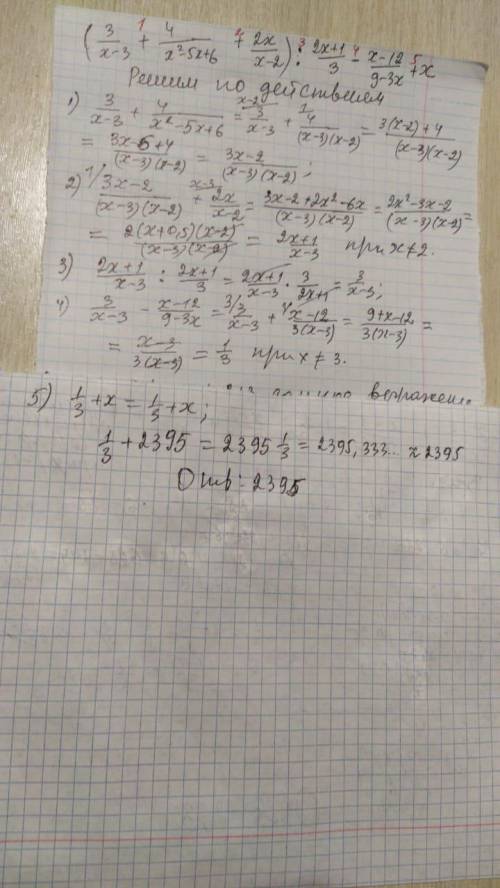 ( 3/(x-3) + 4/(x²-5x+6) + 2x/(x-2) ) : (2x+1)/3 - (x-12)/(9-3x) + x
Решим по действиям
1) 3/(x-3) + 4/(x²-5x+6) = 3/(x-3) + 4/((x-3)(x-2)) = (3(x-2)+4)/((x-3)(x-2))
= (3x-6+4)/((x-3)(x-2)) = (3x-2)/((x-3)(x-2));
2) (3x-2)/((x-3)(x-2)) + 2x/(x-2) = (3x-2+2x²-6x)/((x-3)(x-2)) = (2x²-3x-2)/((x-3)(x-2)) =
= 2(x+0,5)(x-2)/((x-3)(x-2)) = (2x+1)/(x-3) при x≠2.
3) (2x+1)/(x-3) : (2x+1)/3 = (2x+1)/(x-3) · 3/(2x+1) = 3/(x-3);
4) 3/(x-3) - (x-12)/(9-3x) = 3/(x-3) + (x-12)/(3(x-3)) = (9+x-12)/(3(x-3)) =
= (x-3)/(3(x-3)) = 1/3 при x≠3.
5) 1/3 + x = 1/3 + x;
1/3 + 2395 = 2395 1/3 = 2395,333... ≈ 2395
Отв: 2395